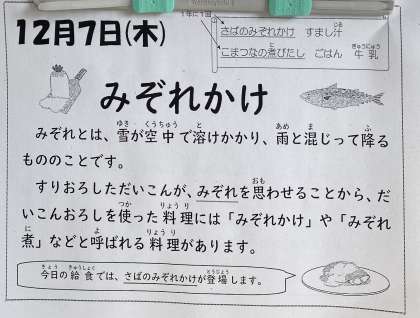 12月7日(木)
さばのみぞれかけ すまし汁
こまつなの煮びたし ごはん 牛乳
みぞれかけ
みぞれとは、雪が空中で溶けかかり、雨と混じって降る
もののことです。
すりおろしただいこんが、みぞれを思わせることから、だ
いこんおろしを使った料理には「みぞれかけ」や「みぞれ
煮」などと呼ばれる料理があります。
今日の給食では、さばのみぞれかけが登場します。